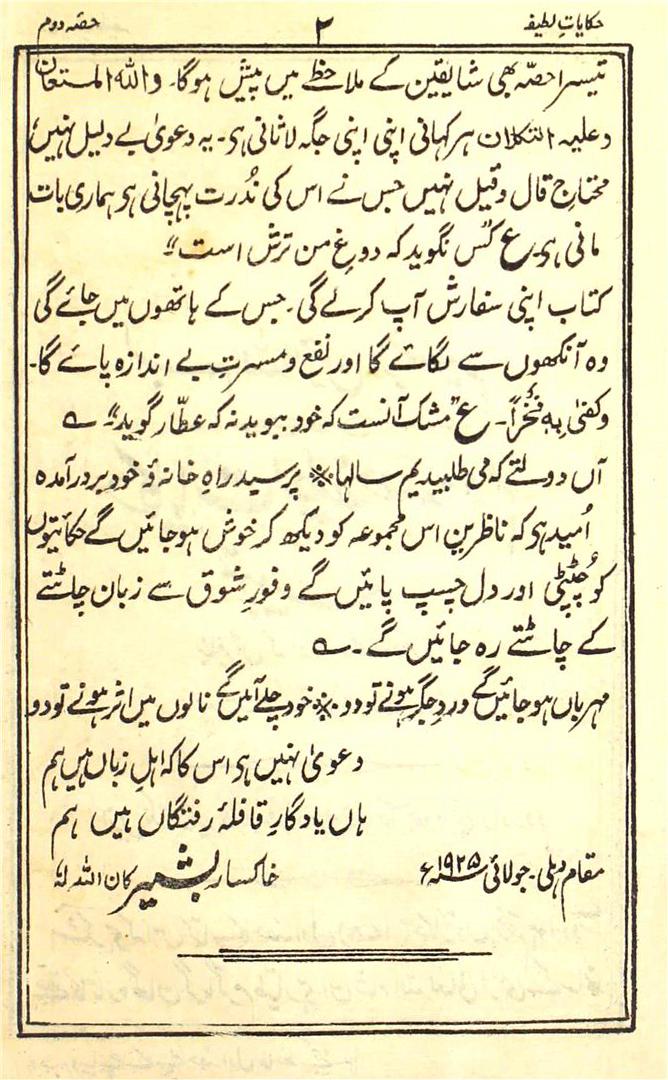 حکایاتِ لطیفہ ۲ حصّہ دوم
تیسرا حصّہ بھی شایقین کے ملاحظے میں پیش ہوگا۔ واللہ المستعان
وعلیہ التکلان ہر کہانی اپنی اپنی جگہ لاثانی ہی۔ یہ دعویٰ بے دلیل نہیں
محتاجِ قال و قیل نہیں جس نے اس کی نُدرت پہچانی ہو ہماری بات
مانی ہی۔ ع کَس نگوید کہ دوغِ من ترش است"
کتاب اپنی سفارش آپ کرلے گی۔ جس کے ہاتھوں میں جائے گی
وہ آنکھوں سے لگائے گا اور نفع و مسرتِ بے اندازہ پائے گا۔
وکفیٰ بِہٖ فَخْراً۔ ع "مشک آنست کہ خود ببوید نہ کہ عطّار گوید"۔ ؎
آں دولتے کہ می طلبیدیم سالہا ※ پرسید راہِ خانہ ؤ خود بر در آمدہ
اُمید ہی کہ ناظرین اس مجموعہ کو دیکھ کر خوش ہوجائیں گے حکائیتوں
کو چُٹپٹی اور دل چسپ پائیں گے وفورِ شوق سے زبان چاٹتے
کے چاٹتے رہ جائیں گے۔ ؎
مہرباں ہوجائیں گے دردِ جگر ہونے تو دو ※ خود چلے آئیں گے نالوں میں اثر ہونے تو دو
دعویٰ نہیں ہی اس کا کہ اہلِ زباں ہیں ہم
ہاں یادگارِ قافلۂ رفتگاں ہیں ہم
مقام دہلی۔ جولائی ۱۹۲۵ء خاکسار بشیر کان اللہ لہٗ